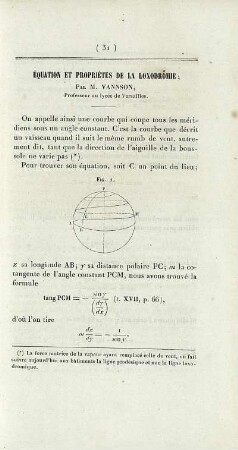 ( 31 )
ÉQUATION ET PROPRIÉTÉS DE LA LOXODROMIE;
PAR M. VANNSON,
Professeur au lycée de Versailles.
On appelle ainsi une courbe qui coupe tous les méri-
diens sous un angle constant. C'est la courbe que décrit
un vaisseau quand il suit le même rumb de vent, autre-
ment dit, tant que la direction de l'aiguille de la bous-
sole ne varie pas (*).
Pour trouver son équation, soit C un point du lieu;
FIG. 1.
x sa longitude AB; y sa distance polaire PC; m la co-
tangente de l'angle constant PCM, nous avons trouvé la
formule
tang PCM = − sin y / (dy/dx) (t. XVII, p. 66),
d'où l'on tire
m dx/dy = − 1/sin y.
(*) La force motrice de la vapeur ayant remplacé celle du vent, on fait
suivre aujourd'hui aux bâtiments la ligne géodésique et non la ligne loxo-
dromique.